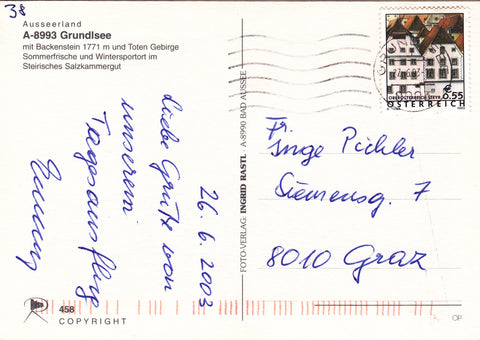 38
Ausseerland
A-8993 Grundlsee
mit Backenstein 1771 m und Toten Gebirge
Sommerfrische und Wintersportort im
Steirisches Salzkammergut
26. 6. 2003
Liebe Grüße von
unserem
Tagesausflug
FOTO-VERLAG: INGRID RASTL A-8990 BAD AUSSEE
€ 0.55
OBERÖSTERREICH STEYR
ÖSTERREICH
Fr.
Inge Pichler
Siemensg. 7
8010 Graz
458
COPYRIGHT
OP